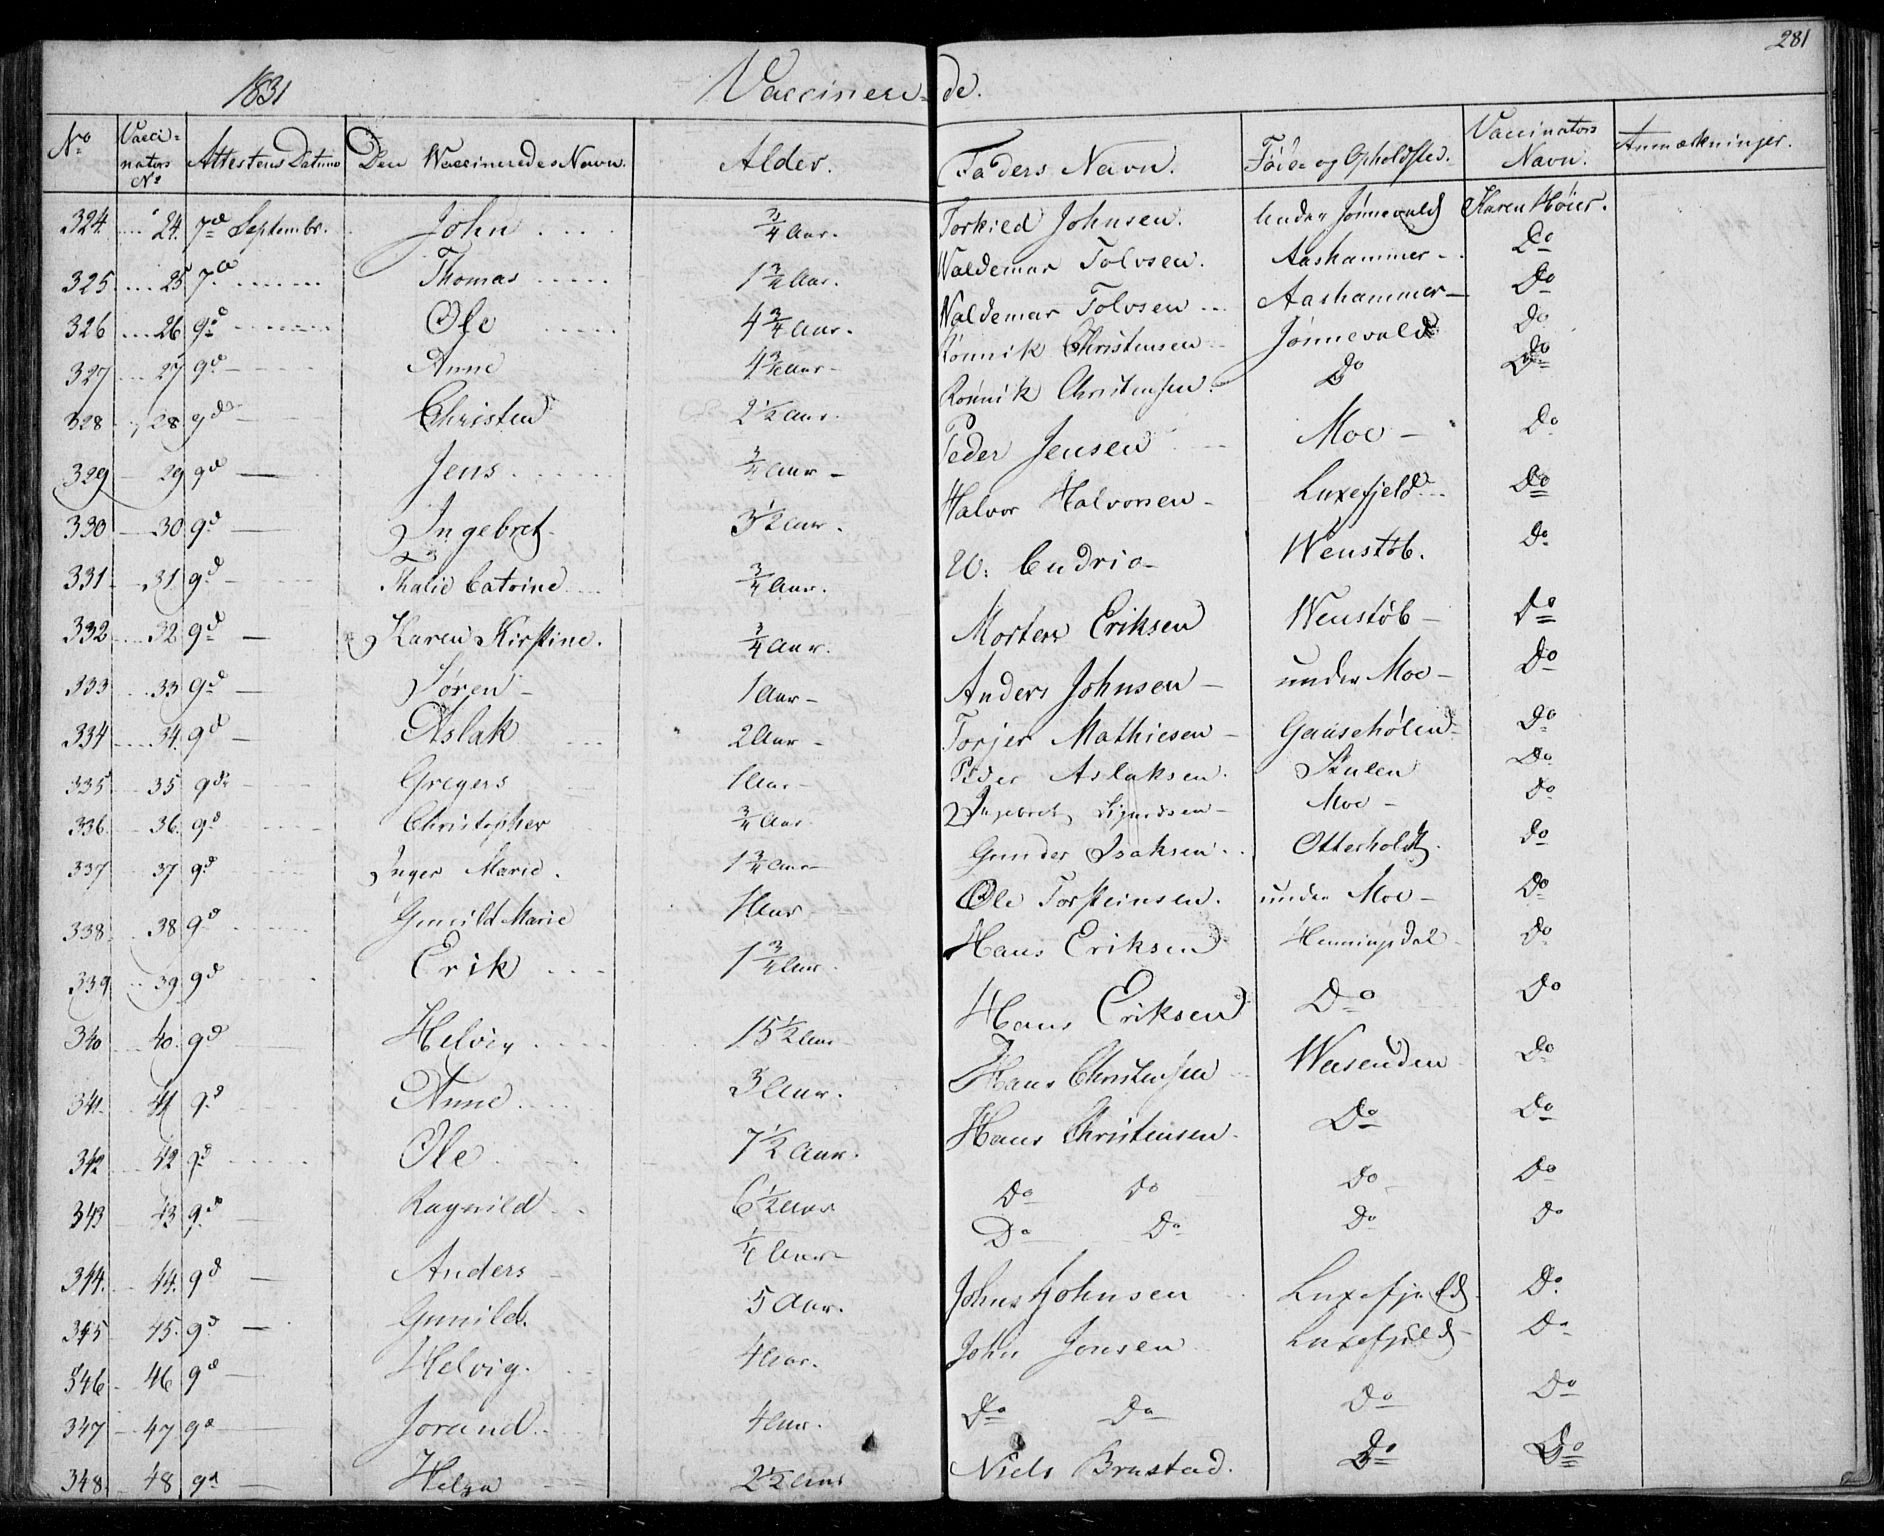 281
1831 Vaccineren- de.
No Vacci-nators No Attestens Datum Den Vaccineredes Navn. Alder. Faders Navn. Føde og Opholdsted. Vaccinators Navn. Anmærkninger.
324. 24. 7de Septembr. John 3/4 Aar. Torkild Johnsen. under Jønnevald Karen Höier.
325. 25 7de Thomas 1 3/4 Aar. Waldemar Tolvsen. Aashammer Do
326 26 9d Ole 4 3/4 Aar. Waldemar Tolvsen Aashammer Do
327 27 9d Anne 4 3/4 Aar Rönnik Christensen Jönnevald Do
328 28 9d Christen 2 1/2 Aar. Rönnik Christensen. Do Do
329 29 9d Jens 3/4 Aar Peder Jensen Moe Do
330 30 9d Ingebret 3 1/2 Aar. Halvor Halvorsen Luxefjeld Do
331 31 9d Thalie Catrine 3/4 Aar. Wenstöb. Do
332 32 9d Karen Kirstine. 3/4 Aar. Morten Eriksen Wenstöb Do
333 33 9d Sören 1 Aar Anders Johnsen under Moe Do
334 34. 9d Aslak 2 Aar Torjer Mathiesen Gaasehölen Do
335 35 9de Gregers 1 Aar Peder Aslaksen. Do
336 36. 9d Christopher 3/4 Aar Ingebret Sigurdsen Moe Do
337 37 9d Inger Marie. 1 3/4 Aar Gunder Isaksen. Otterholdt. Do
338 38 9d Gunild Marie 1 Aar Ole Torsteinsen. under Moe Do
339 39 9d Erik 1 3/4 Aar. Hans Eriksen Henningsdal Do
340 40. 9d Helvig 15 1/2 Aar Hans Eriksen Do Do
341 41 9d Anne 3 Aar. Hans Christensen Weisenden Do
342 42 9d Ole 7 1/2 Aar. Hans Christensen. Do Do
343 43 9d Ragnild 6 1/2 Aar Do Do Do Do
344. 44. 9d Anders 1/4 Aar Do Do Do Do
345 45. 9d Gunild. 5 Aar. John Johnsen Luxefjeld Do
346 46 9d Helvig. 4 Aar. John Jonsen Luxefjeld Do
347 47 9d Jorand 4 Aar. Do Do Do Do
348. 48 9d Helga 2 1/2 Aar Niels Brustad. Do Do